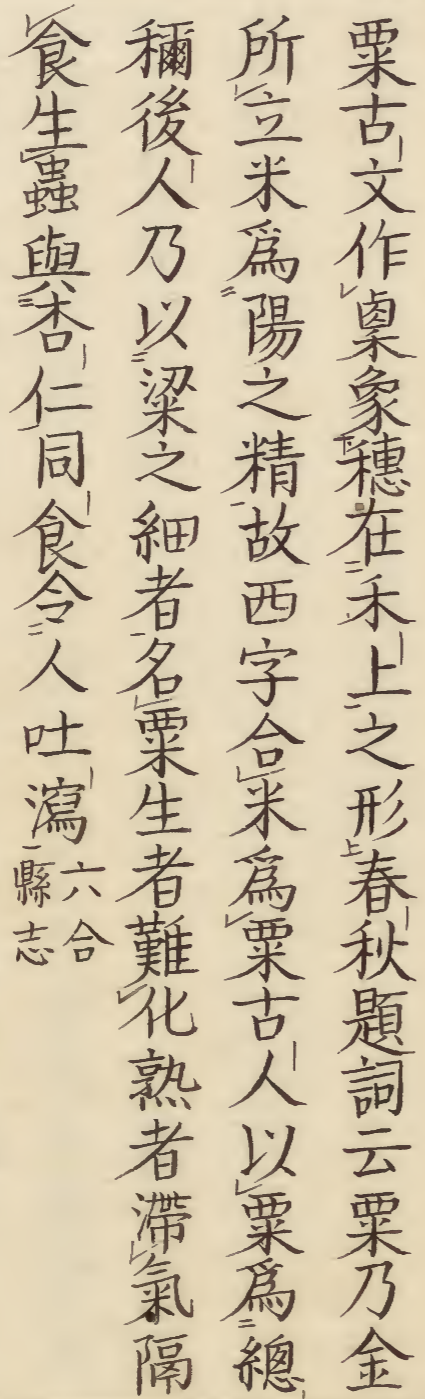 粟古文作㮚象穗在禾上之形春秋題詞云粟乃金
所立米爲陽之精故西字合米爲粟古人以粟爲總
穪後人乃以粱之細者名粟生者難化熟者滯氣隔
食生蟲與杏仁同食令人吐瀉六合縣志